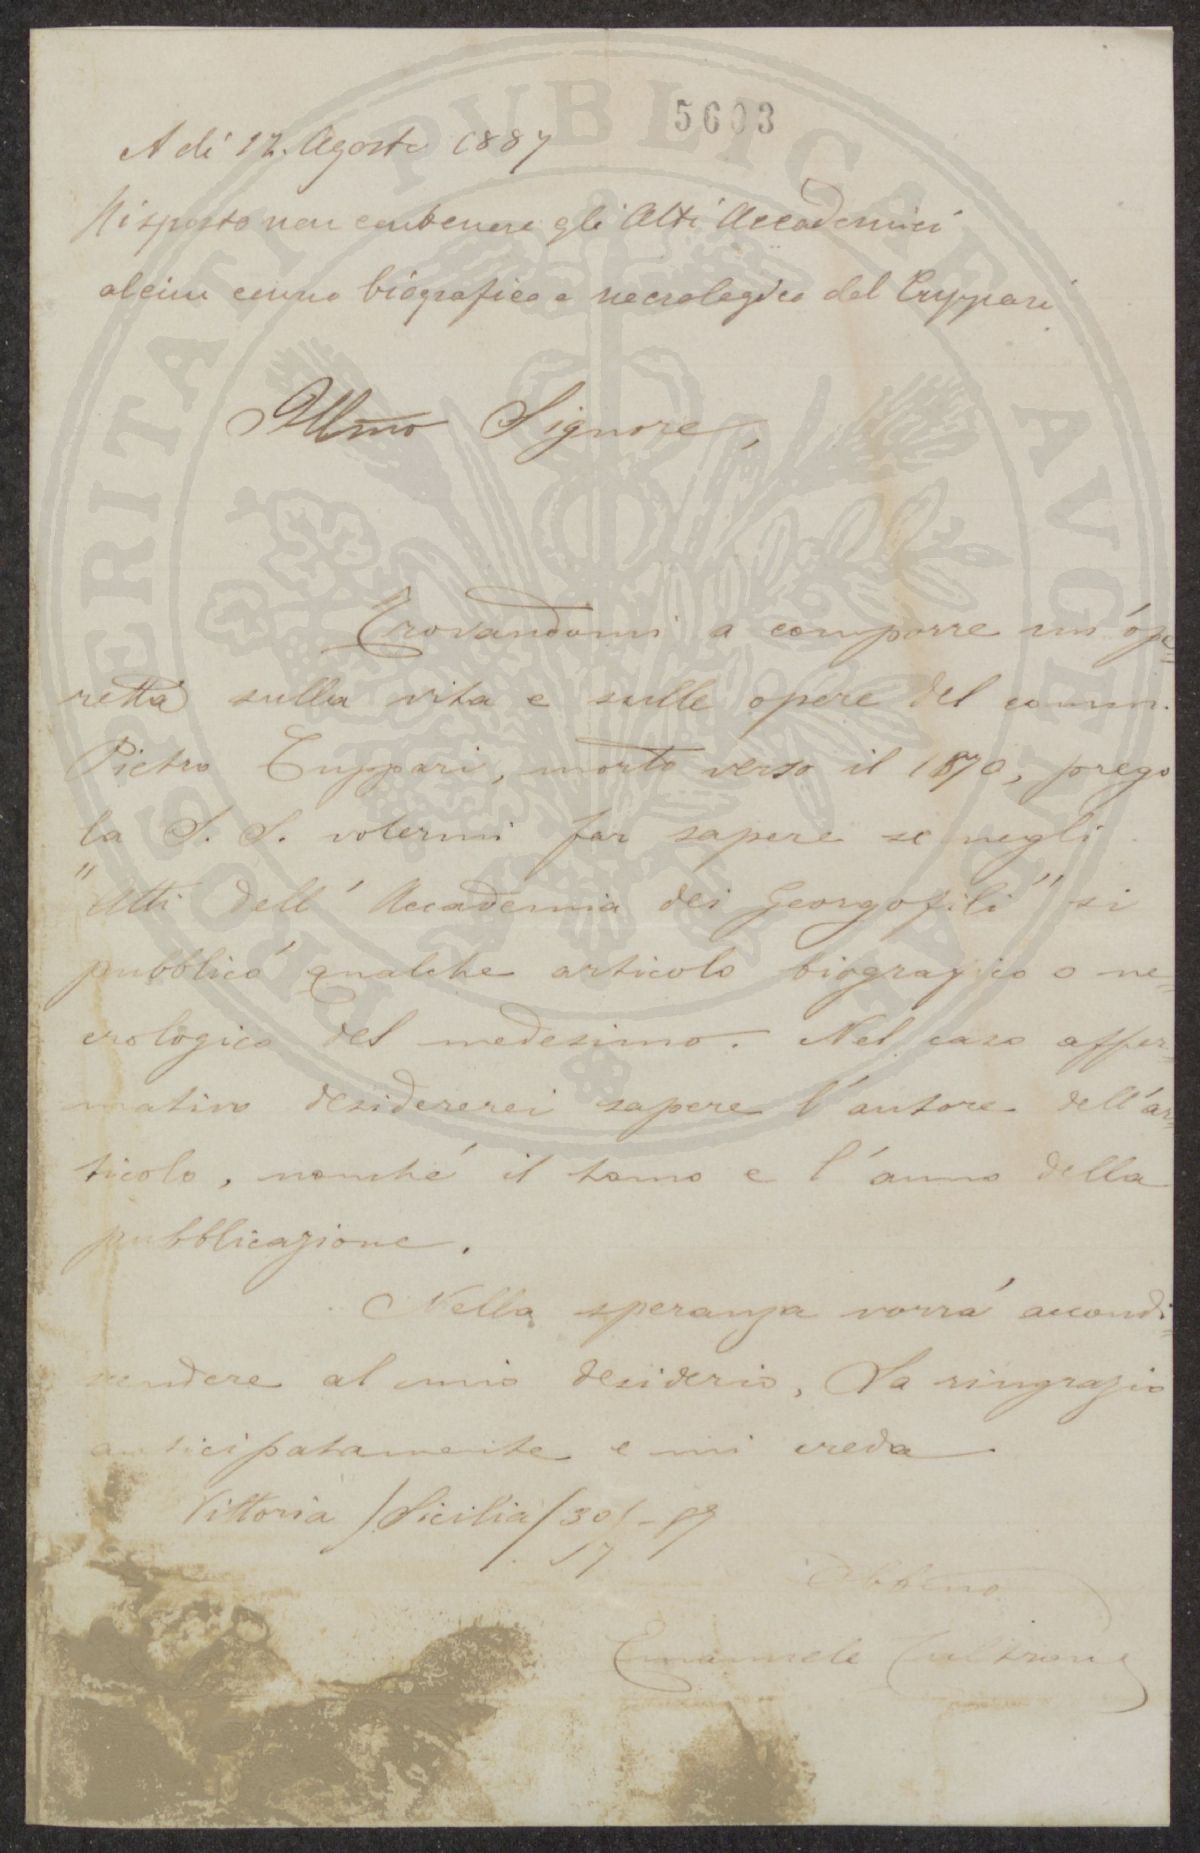 5603
A dì 12. Agosto 1887
Risposto non contenere gli Atti Accademici
alcun cenno biografico o necrologico del Cuppari
Illmo Signore,
Trovandomi a comporre un' ope=
retta sulla vita e sulle opere del comm.
Pietro Cuppari, morto verso il 1870, prego
la S. S. volermi far sapere se negli
"Atti dell' Accademia dei Georgofili" si
pubblicó qualche articolo biografico o ne=
crologico del medesimo. Nel caso affer=
mativo desidererei sapere l' autore dell' ar=
ticolo, nonché il tomo e l' anno della
pubblicazione.
Nella speranza vorrá accondi=
scendere al mio desiderio, La ringrazio
anticipatamente e mi creda
Vittoria /Sicilia/ 30/
Obbmo
Emanuele
PROSPERITATI PVBLICAE AVGENDAE